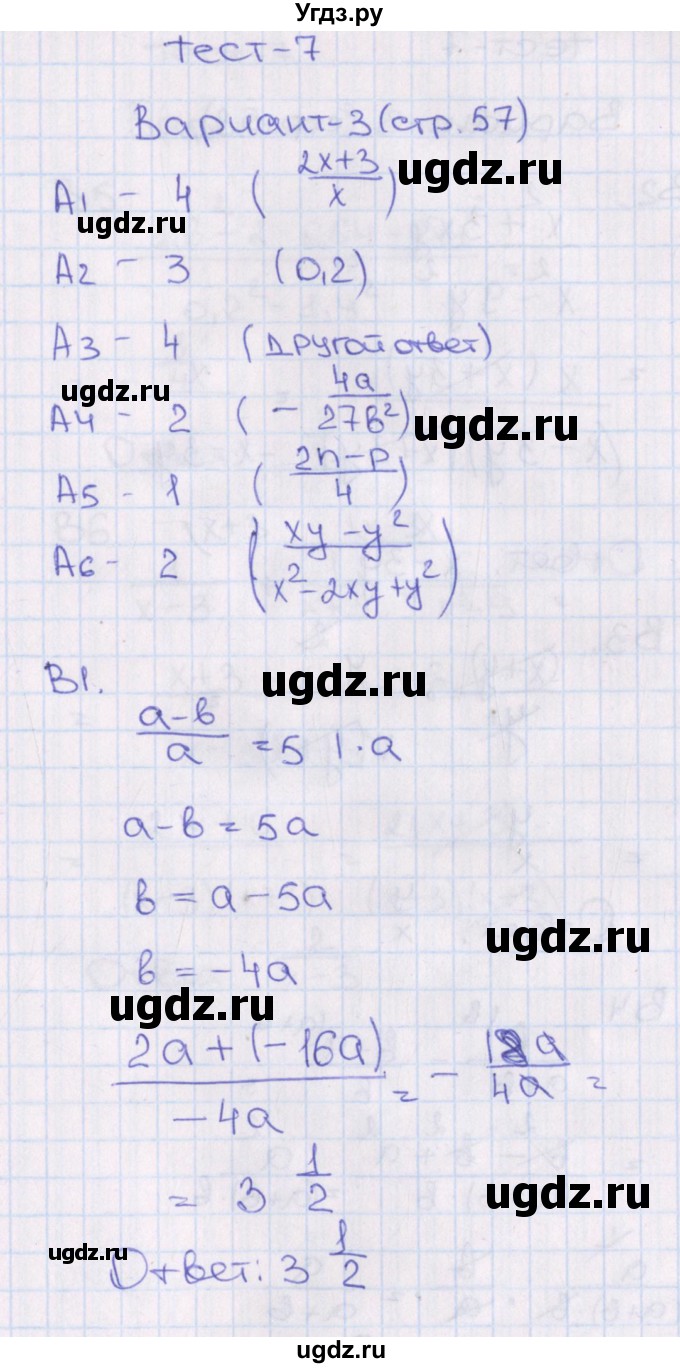 Угдз.ру
Тест-7
Вариант-3 (стр.57)
A1 - 4 ( (2x+3)/x )
ugdz.ru
ugdz.ru
A2 - 3 (0,2)
A3 - 4 (Другой ответ)
ugdz.ru
A4 - 2 ( - 4a/27b² )
ugdz.ru
A5 - 1 ( (2n-p)/4 )
A6 - 2 ( (xy - y²)/(x² - 2xy + y²) )
B1.
ugdz.ru
(a-b)/a = 5 | · a
a-b = 5a
b = a - 5a
ugdz.ru
b = -4a
ugdz.ru
(2a + (-16a))/(-4a) = - a/4a =
= 3 1/2
ugdz.ru
ugdz.ru
Ответ: 3 1/2
ugdz.ru